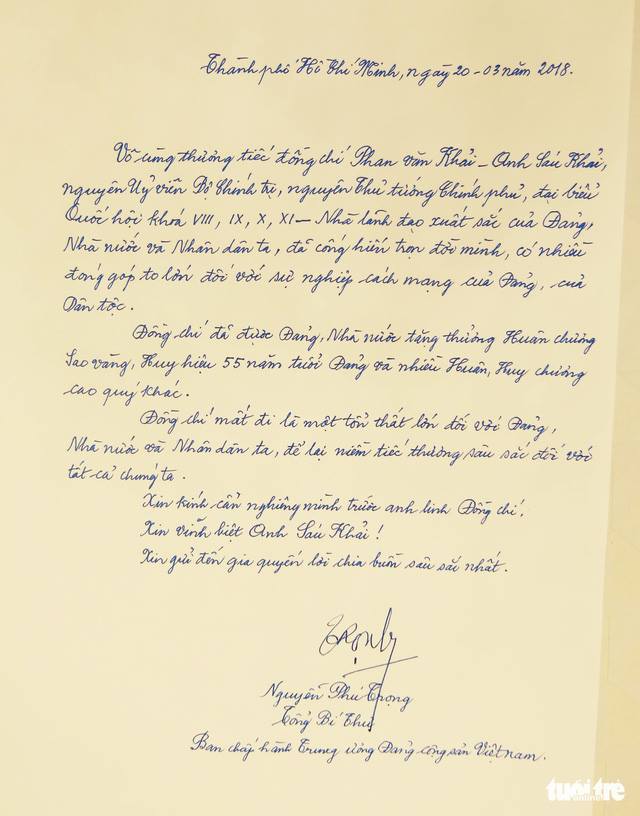 Thành phố Hồ Chí Minh, ngày 20-03 năm 2018.
Vô cùng thương tiếc đồng chí Phan Văn Khải - Anh Sáu Khải,
nguyên Uỷ viên Bộ Chính trị, nguyên Thủ tướng Chính phủ, đại biểu
Quốc hội khoá VIII, IX, X, XI - Nhà lãnh đạo xuất sắc của Đảng,
Nhà nước và Nhân dân ta, đã cống hiến trọn đời mình, có nhiều
đóng góp to lớn đối với sự nghiệp cách mạng của Đảng, của
Dân tộc.
Đồng chí đã được Đảng, Nhà nước tặng thưởng Huân chương
Sao vàng, Huy hiệu 55 năm tuổi Đảng và nhiều Huân, Huy chương
cao quý khác.
Đồng chí mất đi là một tổn thất lớn đối với Đảng,
Nhà nước và Nhân dân ta, để lại niềm tiếc thương sâu sắc đối với
tất cả chúng ta.
Xin kính cẩn nghiêng mình trước anh linh Đồng chí,
Xin vĩnh biệt Anh Sáu Khải!
Xin gửi đến gia quyến lời chia buồn sâu sắc nhất.
Nguyễn Phú Trọng
Tổng Bí Thư
Ban chấp hành Trung ương Đảng cộng sản Việt nam.
tuổi trẻ
online